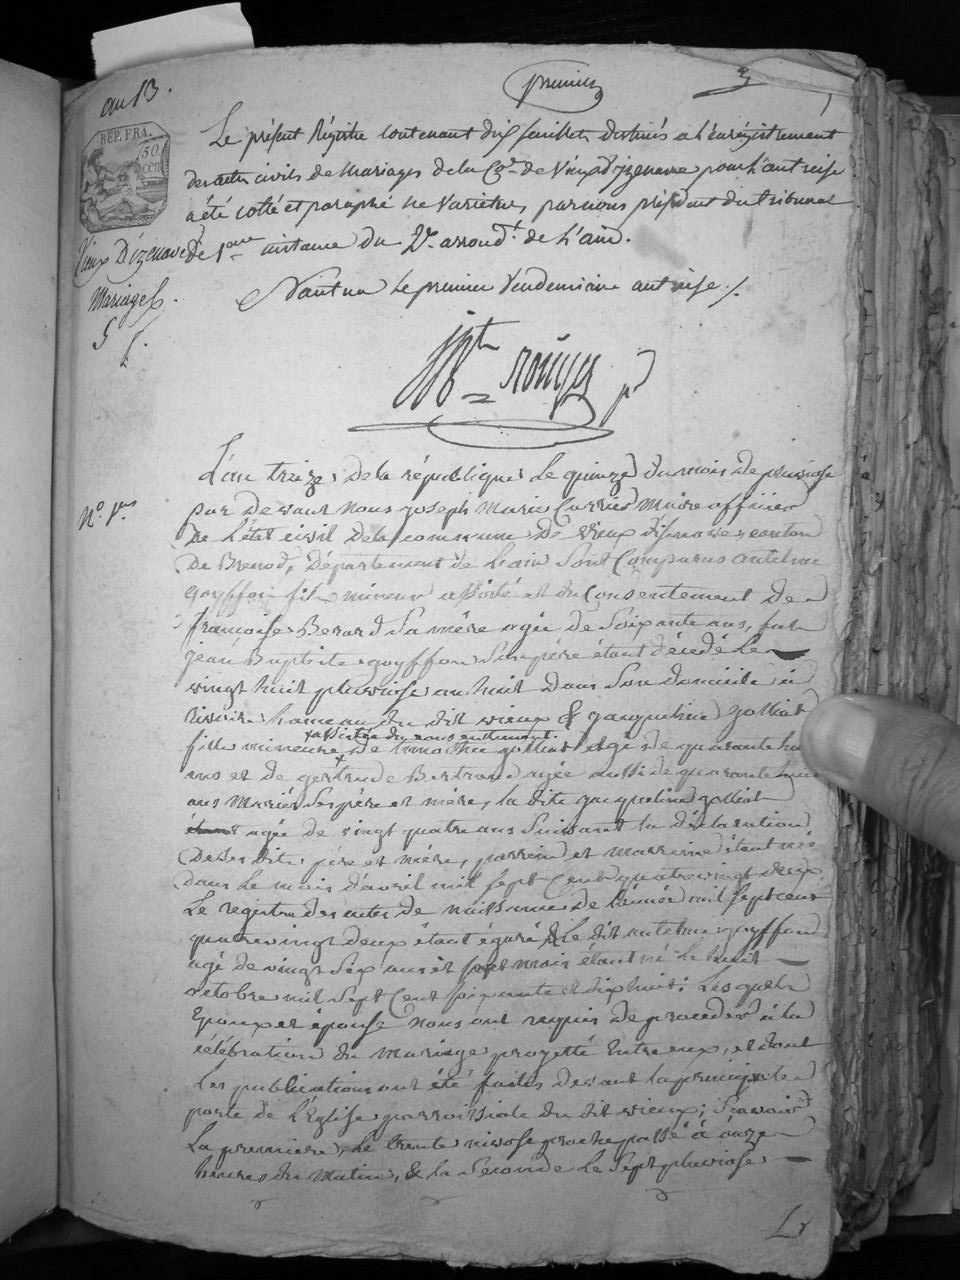 an 13.
premier
3
REP. FRA.
50
cent
Vieux Dizenave
Mariages.
Le présent Régistre contenant dix feuillets destinés a l'enrégistrement
des actes civils de Mariages de la Cne de Vieu d'izenave pour l'an treise
a été cotté et paraphé ne Varietur, par nous président du tribunal
de 1ere instance du 2e arrondt de l'ain.
Nantua le premier Vendemiaire an treise ./.
N° 1er
L'an treize de la république le quinze du mois de pluviose
par devant nous joseph Marie Carrier Maire officier
de l'état civil de la commune de vieux disenave, canton
De Brenod, Département de l'ain sont Comparus antelme
goyffon fils mineur assisté et du Consentement de
françoise Berard sa mère agée de soixante ans, feu
jean Baptiste goyffon son père étant décédé le
vingt huit pluviose an huit dans son domicile à
hameau du dit vieux & jacqueline golliat
assistée du consentement
fille mineure de golliat agé de quarante huit
ans et de gertrude Bertrand agée aussi de quarante huit
ans Mariés ses père et mère, la dite jacqueline golliat
agée de vingt quatre ans suivant la déclaration
De ses dits père et mère, parrein et marreine étant née
dans le mois d'avril mil sept Cent quatre vingt deux
Le registre des actes de naissance de l'année mil sept cent
quatre vingt deux étant égaré & le dit antelme goyffon
agé de vingt six ans et mois étant né le huit
octobre mil sept Cent soixante et dix huit: Lesquels
Epoux et épouse nous ont requis de proceder à la
célébration du mariage projetté entre eux, et dont
Les publications ont été faites devant la principale
porte de l'Eglise parroissiale du dit vieux; sçavoir
La première, le trente nivose proche passé à onze
heures du Matin, & la Seconde le sept pluviose